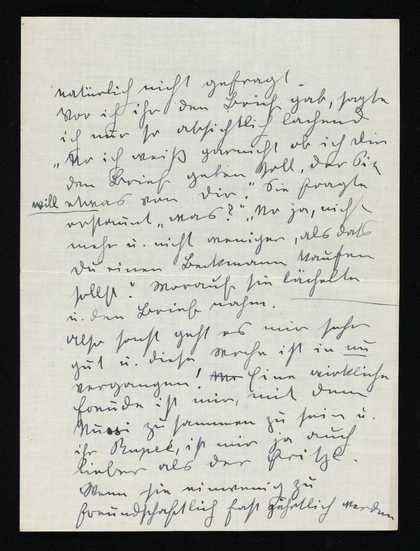 natürlich nicht gefragt.
Vor ich ihr den Brief gab, sagte
ich nur so absichtlich lachend
„No ich weiß garnicht ob ich dir
den Brief geben soll, der Pix
will etwas von dir." Sie fragte
erstaunt „was?" „No ja, nicht
mehr u. nicht weniger, als daß
du einen Beckmann kaufen
sollst." Worauf sie lächelte
u. den Brief nahm.
Also sonst geht es mir sehr
gut u. diese Woche ist in nu
vergangen! Eine wirkliche
Freude ist mir, mit dem
zu sammen zu sein u.
ihr ist mir ja auch
lieber als der Fritzl.
Wenn sie einwenig zu
freundschaftlich fast zärtlich werden